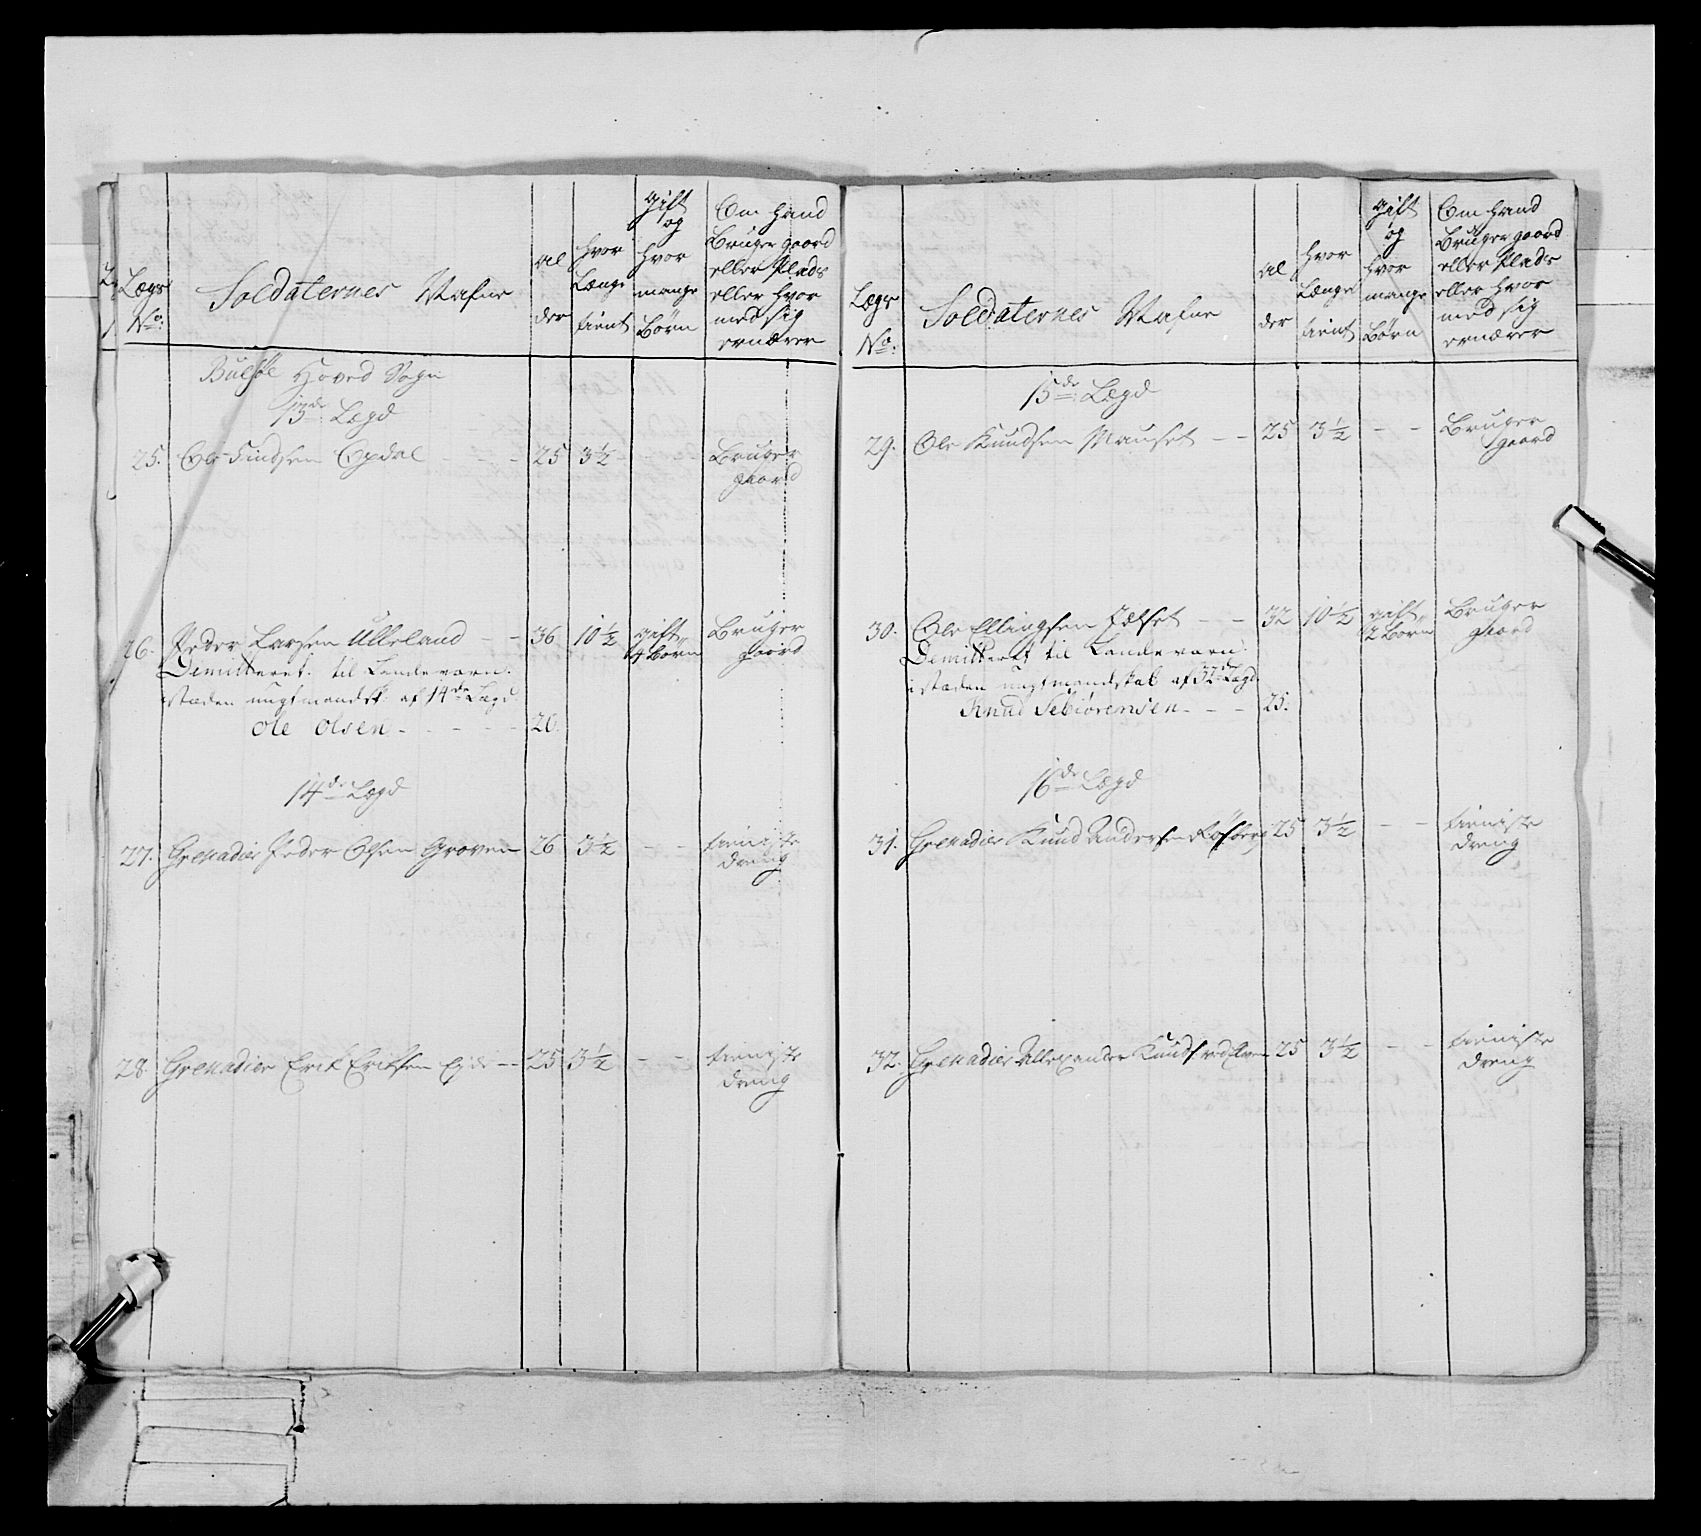 Lægs No:
Soldaternes Nafne
Al der
hvor Længe tient
gift og hvor mange Børn
Om hand Bruger gaard eller Plads eller hvor med sig ernærer
Hoved Sogn
13de Lægd
25. Ole Findsen Opdal - - 25 3½ - - Bruger gaard
26. Peder Larsen Ulleland - - 36 10½ gift 4 Børn Bruger gaard
Demitteret til Landeværn.
istæden ungtmandsk. af 14de Lægd
Ole Olsen - - - - - 20.
14de Lægd
27. Grenadier Peder Olsen Groven 26 3½ - - tieniste dreng
28. Grenadier Erik Eriksen Eide - - 25 3½ - - tieniste dreng
Lægs No:
Soldaternes Nafne
Al der
hvor Længe tient
gift og hvor mange Børn
Om hand Bruger gaard eller Plads eller hvor med sig ernærer
15de Lægd
29. Ole Knudsen Mauset - - 25 3½ - - Bruger gaard
30. Ole Ellingsen - - 32 10½ gift 2 Børn Bruger gaard
Demitteret til Landeværn:
istæden ungtmandskab af 32de Lægd
Knud Sebiørensen - - - 25.
16de Lægd
31. Grenadier Knud Andersen 25 3½ - - tieniste dreng
32. Grenadier Allexander Knuds 25 3½ - - tieniste dreng